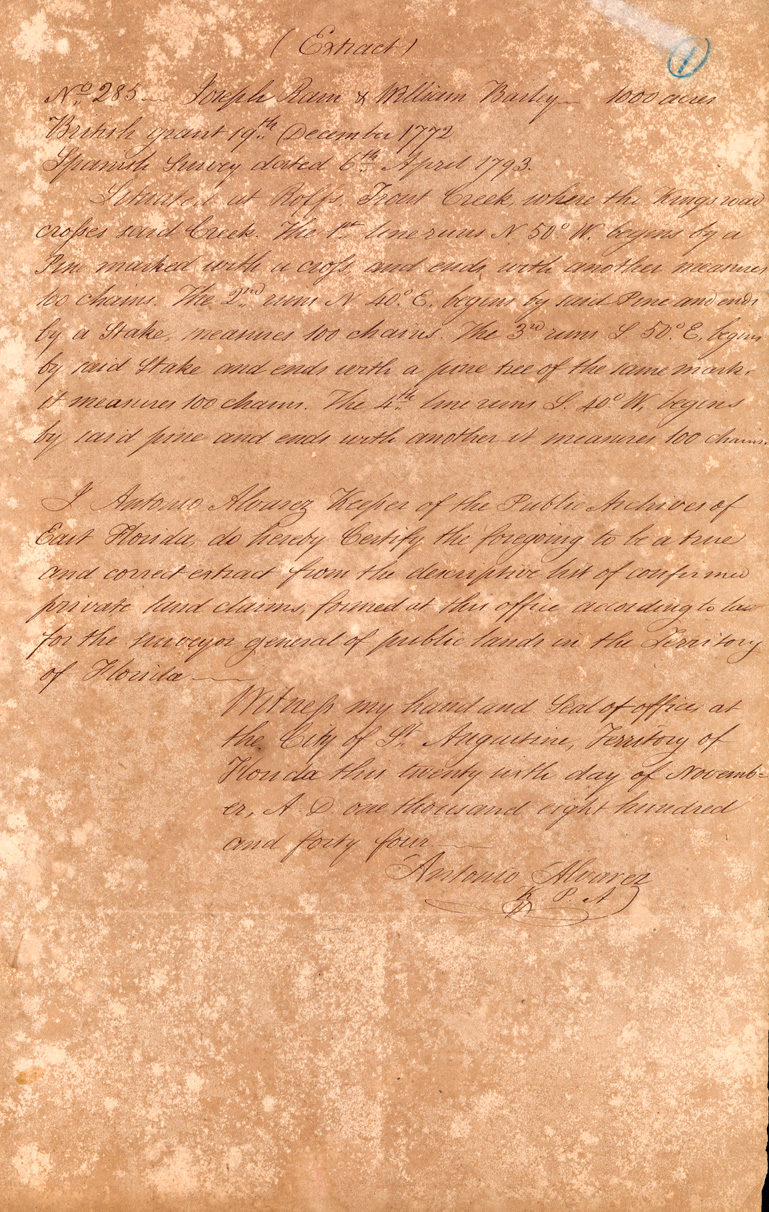 (Extract)
1
No. 285 — Joseph Rain & William Bailey — 1000 acres
British grant 19th December 1772
Spanish Survey dated 6th April 1793.
Situated at Rolfs, Trout Creek, where the Kings road
crosses said Creek. The 1st line runs N. 50° W. begins by a
Pine marked with a cross and ends with another measures
100 chains. The 2nd runs N 40° E. begins by said Pine and ends
by a Stake, measures 100 chains. The 3rd runs S 50° E, begins
by said Stake and ends with a pine tree of the same mark.
it measures 100 chains. The 4th line runs S. 40° W, begins
by said pine and ends with another it measures 100 chains.
I Antonio Alvarez Keeper of the Public Archives of
East Florida, do hereby Certify the foregoing to be a true
and correct extract from the descriptive list of confirmed
private land claims, formed at this office according to law
for the surveyor general of public lands in the Territory
of Florida —
Witness my hand and Seal of office, at
the City of St. Augustine, Territory of
Florida this twenty sixth day of Novemb-
er, A D one thousand eight hundred
and forty four —
Antonio Alvarez
K P. A